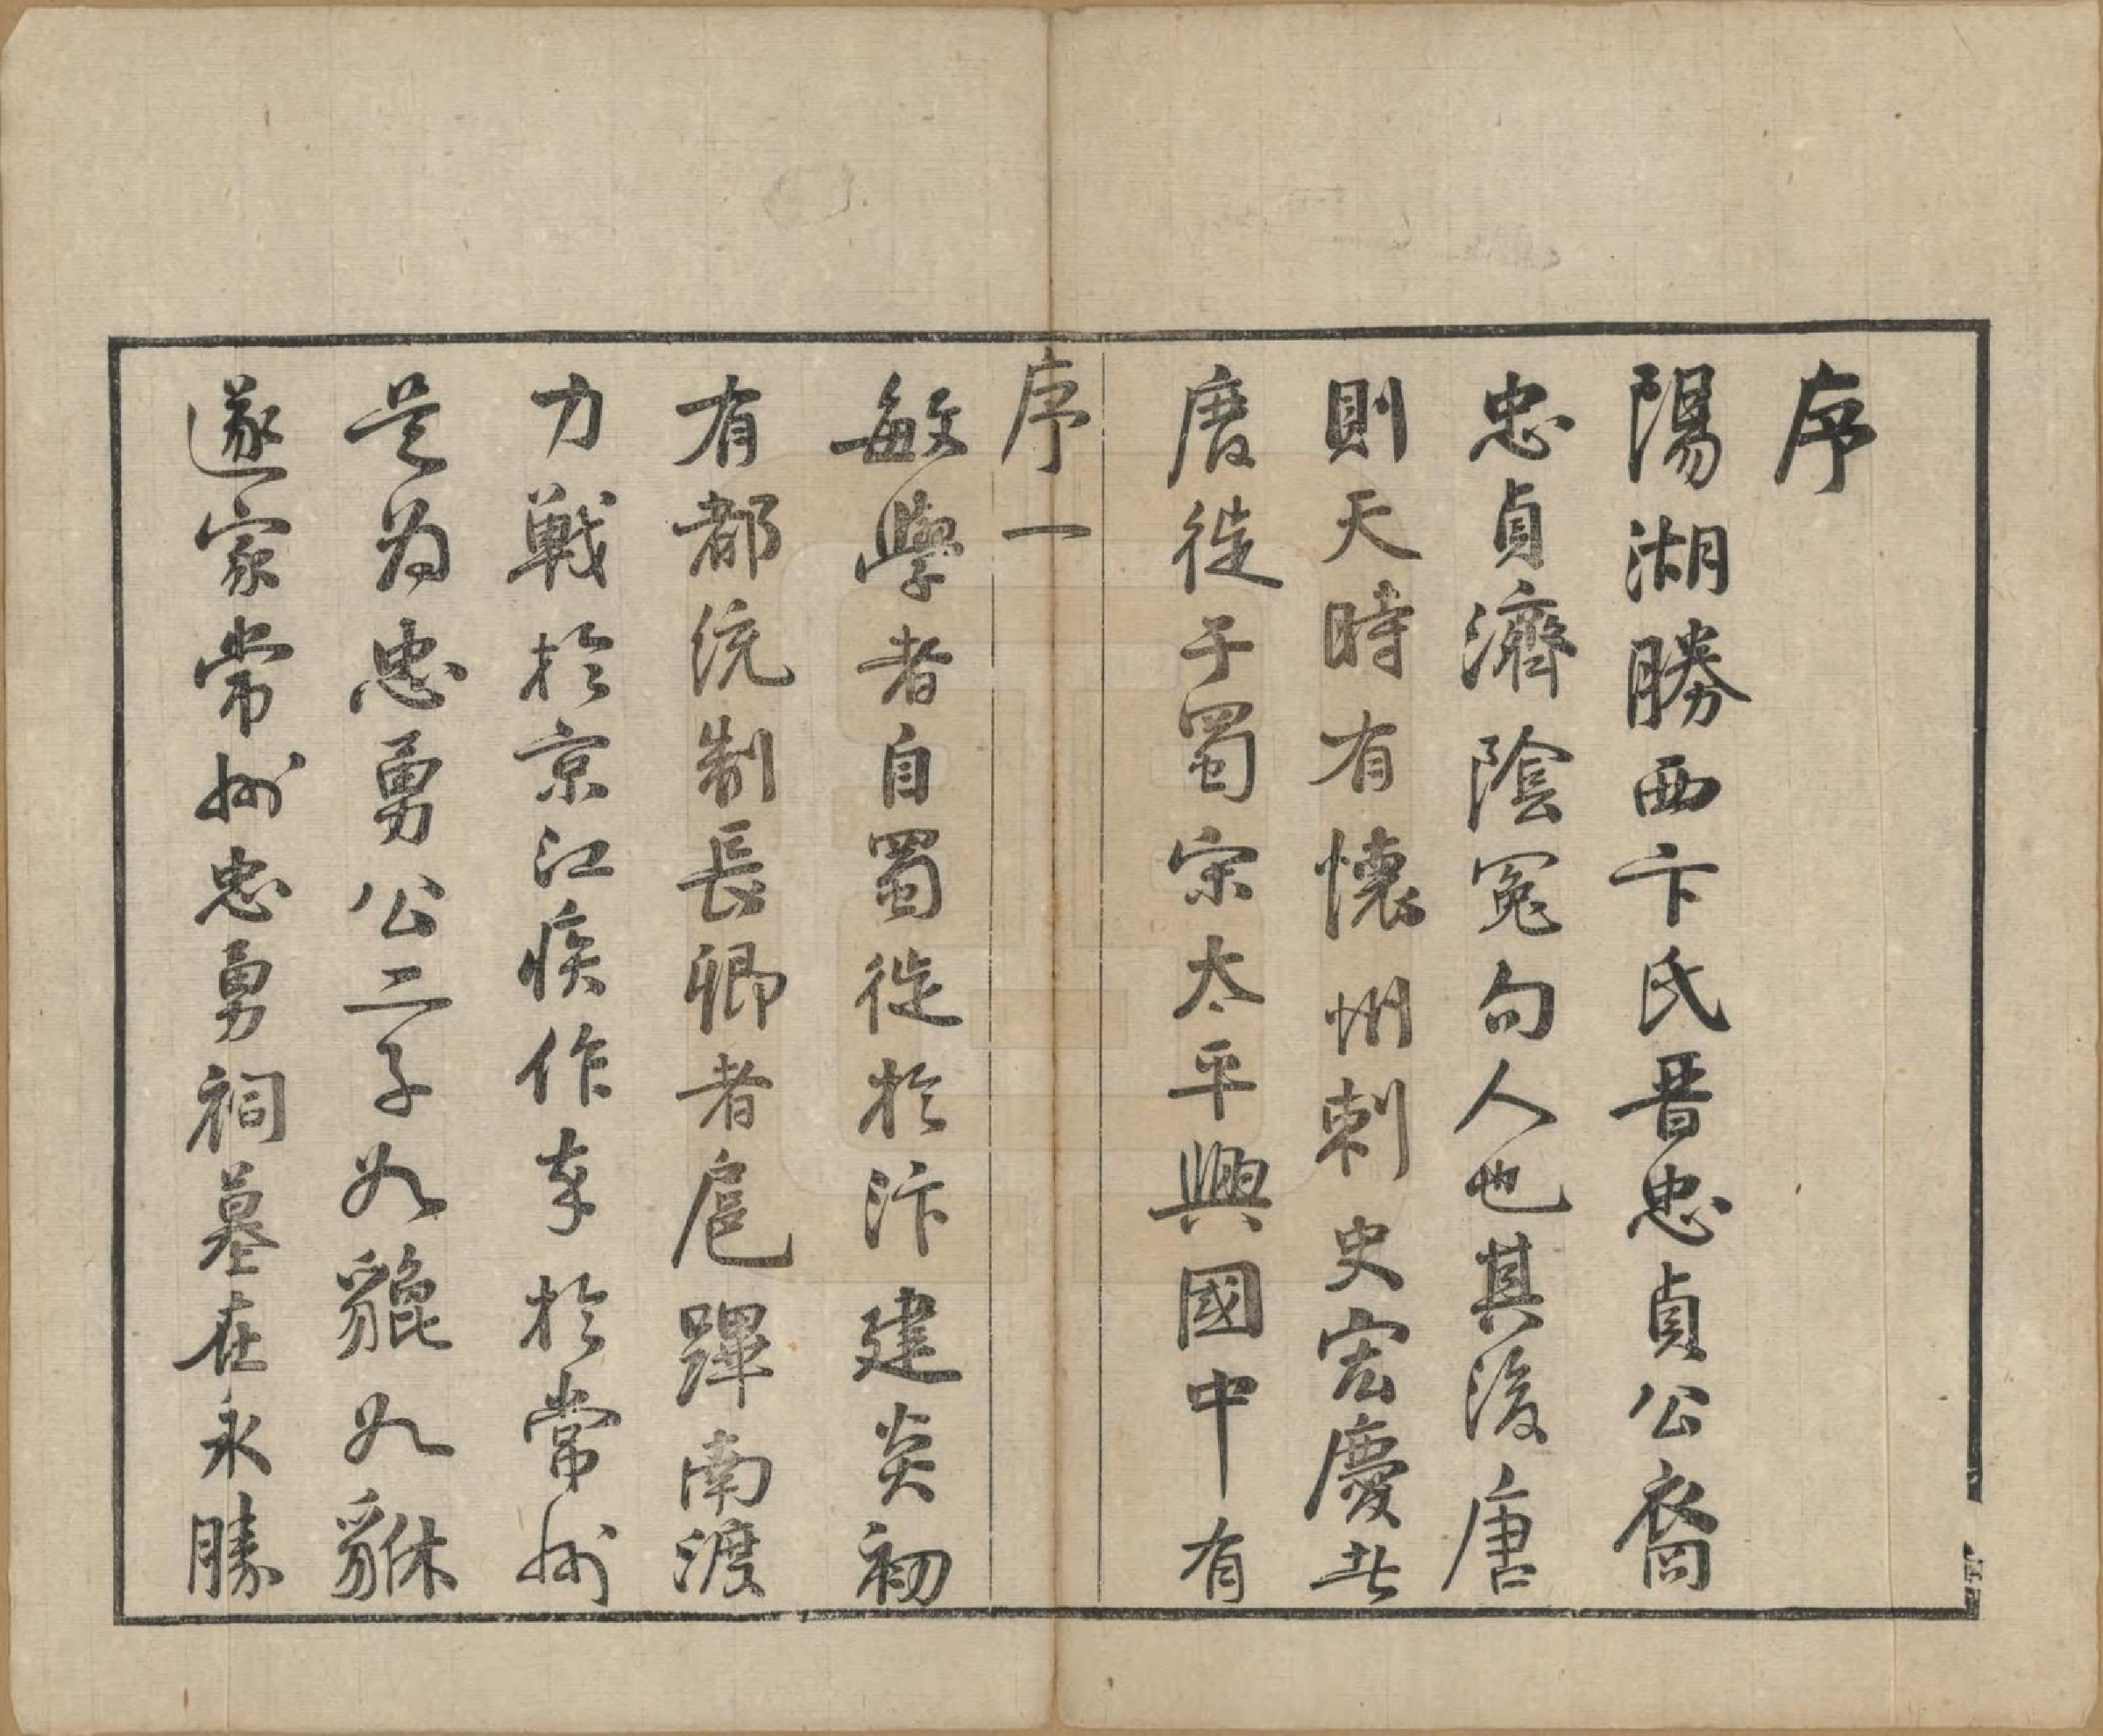 序
陽湖勝西卞氏晋忠貞公裔
忠貞濟陰冤句人也其後唐
則天時有懷州刺史宏慶北
唐徙于蜀宗太平興國中有
序一
敏學者自蜀徙於汴建炎初
有都統制長卿者扈蹕南渡
力戰於京江疾作卒於常州
是為忠勇公二子如貔如貅
遂家常州忠勇祠墓在永勝